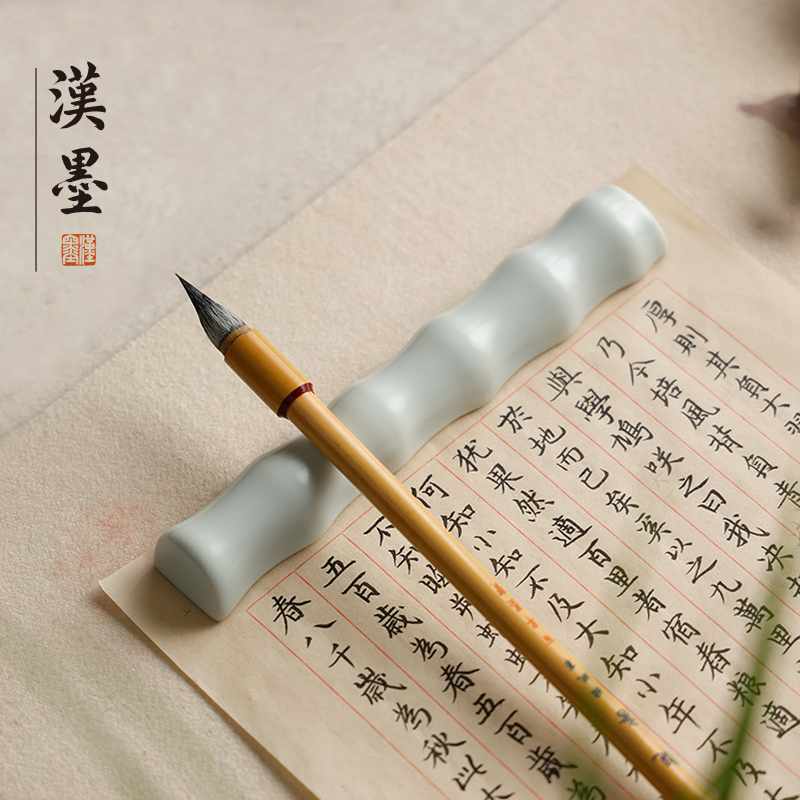 漢墨
漢墨
厚則其負大
乃今培風背負青
與學鳩咲之曰我決
於地而已矣奚以之九萬里
犹果然適百里者宿春粮適
何知小知不及大知小年不及
不知晦朔
五百歲為春五百歲為
春八千歲為秋此大